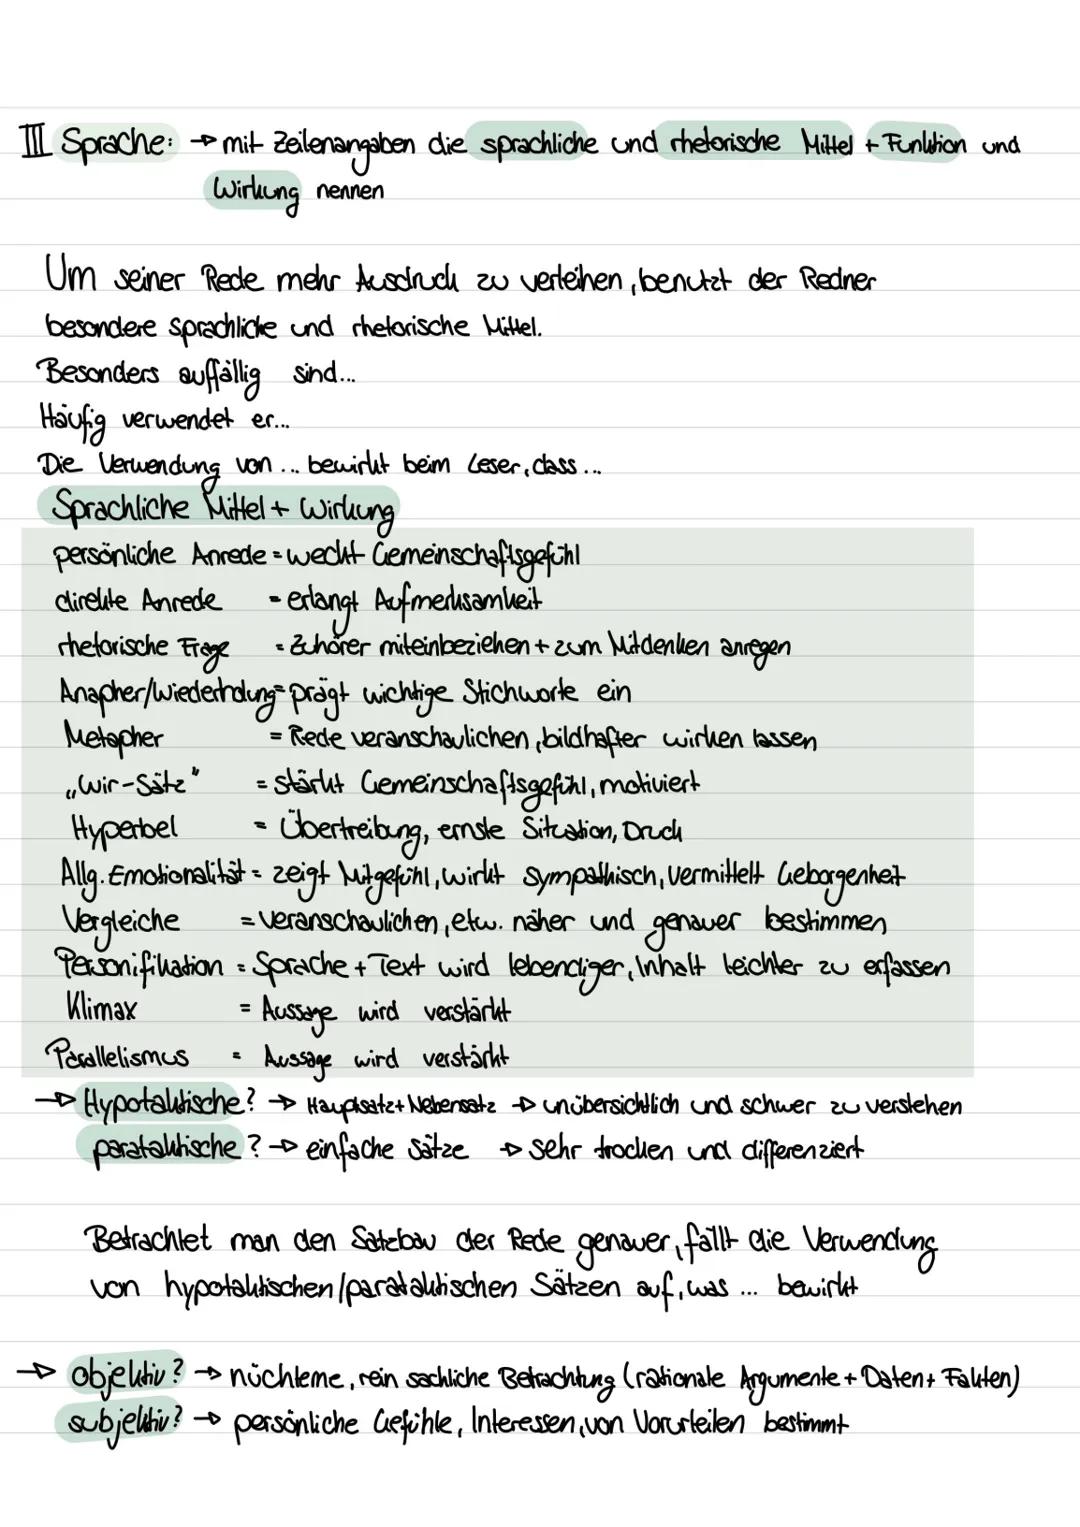 III Sprache: → mit Zeilenangaben die sprachliche und rhetorische Mittel + Funktion und
Wirkung nennen
Um seiner Rede mehr Ausdruck zu verleihen, benutzt der Redner
besondere sprachliche und rhetorische Mittel.
Besonders auffällig sind...
Häufig verwendet er...
Die Verwendung von ... bewirkt beim Leser, dass ...
Sprachliche Mittel + Wirkung
persönliche Anrede = weckt Gemeinschaftsgefühl
direkte Anrede = erlangt Aufmerksamkeit
rhetorische Frage = Zuhörer miteinbeziehen + zum Mitdenken anregen
Anapher/Wiederholung = prägt wichtige Stichworte ein
Metapher = Rede veranschaulichen, bildhafter wirken lassen
„Wir-Sätz" = stärkt Gemeinschaftsgefühl, motiviert
Hyperbel = Übertreibung, ernste Situation, Druck
Allg. Emotionalität = zeigt Mitgefühl, wirkt sympathisch, vermittelt Geborgenheit
Vergleiche = veranschaulichen, etw. näher und genauer bestimmen
Personifikation = Sprache + Text wird lebendiger, Inhalt leichter zu erfassen
Klimax = Aussage wird verstärkt
Parallelismus = Aussage wird verstärkt
→ Hypotaktische? → Hauptsatz + Nebensatz → unübersichtlich und schwer zu verstehen
parataktische? → einfache Sätze → sehr trocken und differenziert
Betrachtet man den Satzbau der Rede genauer, fällt die Verwendung
von hypotaktischen/parataktischen Sätzen auf, was ... bewirkt
→ objektiv? → nüchterne, rein sachliche Betrachtung (rationale Argumente + Daten + Fakten)
subjektiv? → persönliche Gefühle, Interessen, von Vorurteilen bestimmt